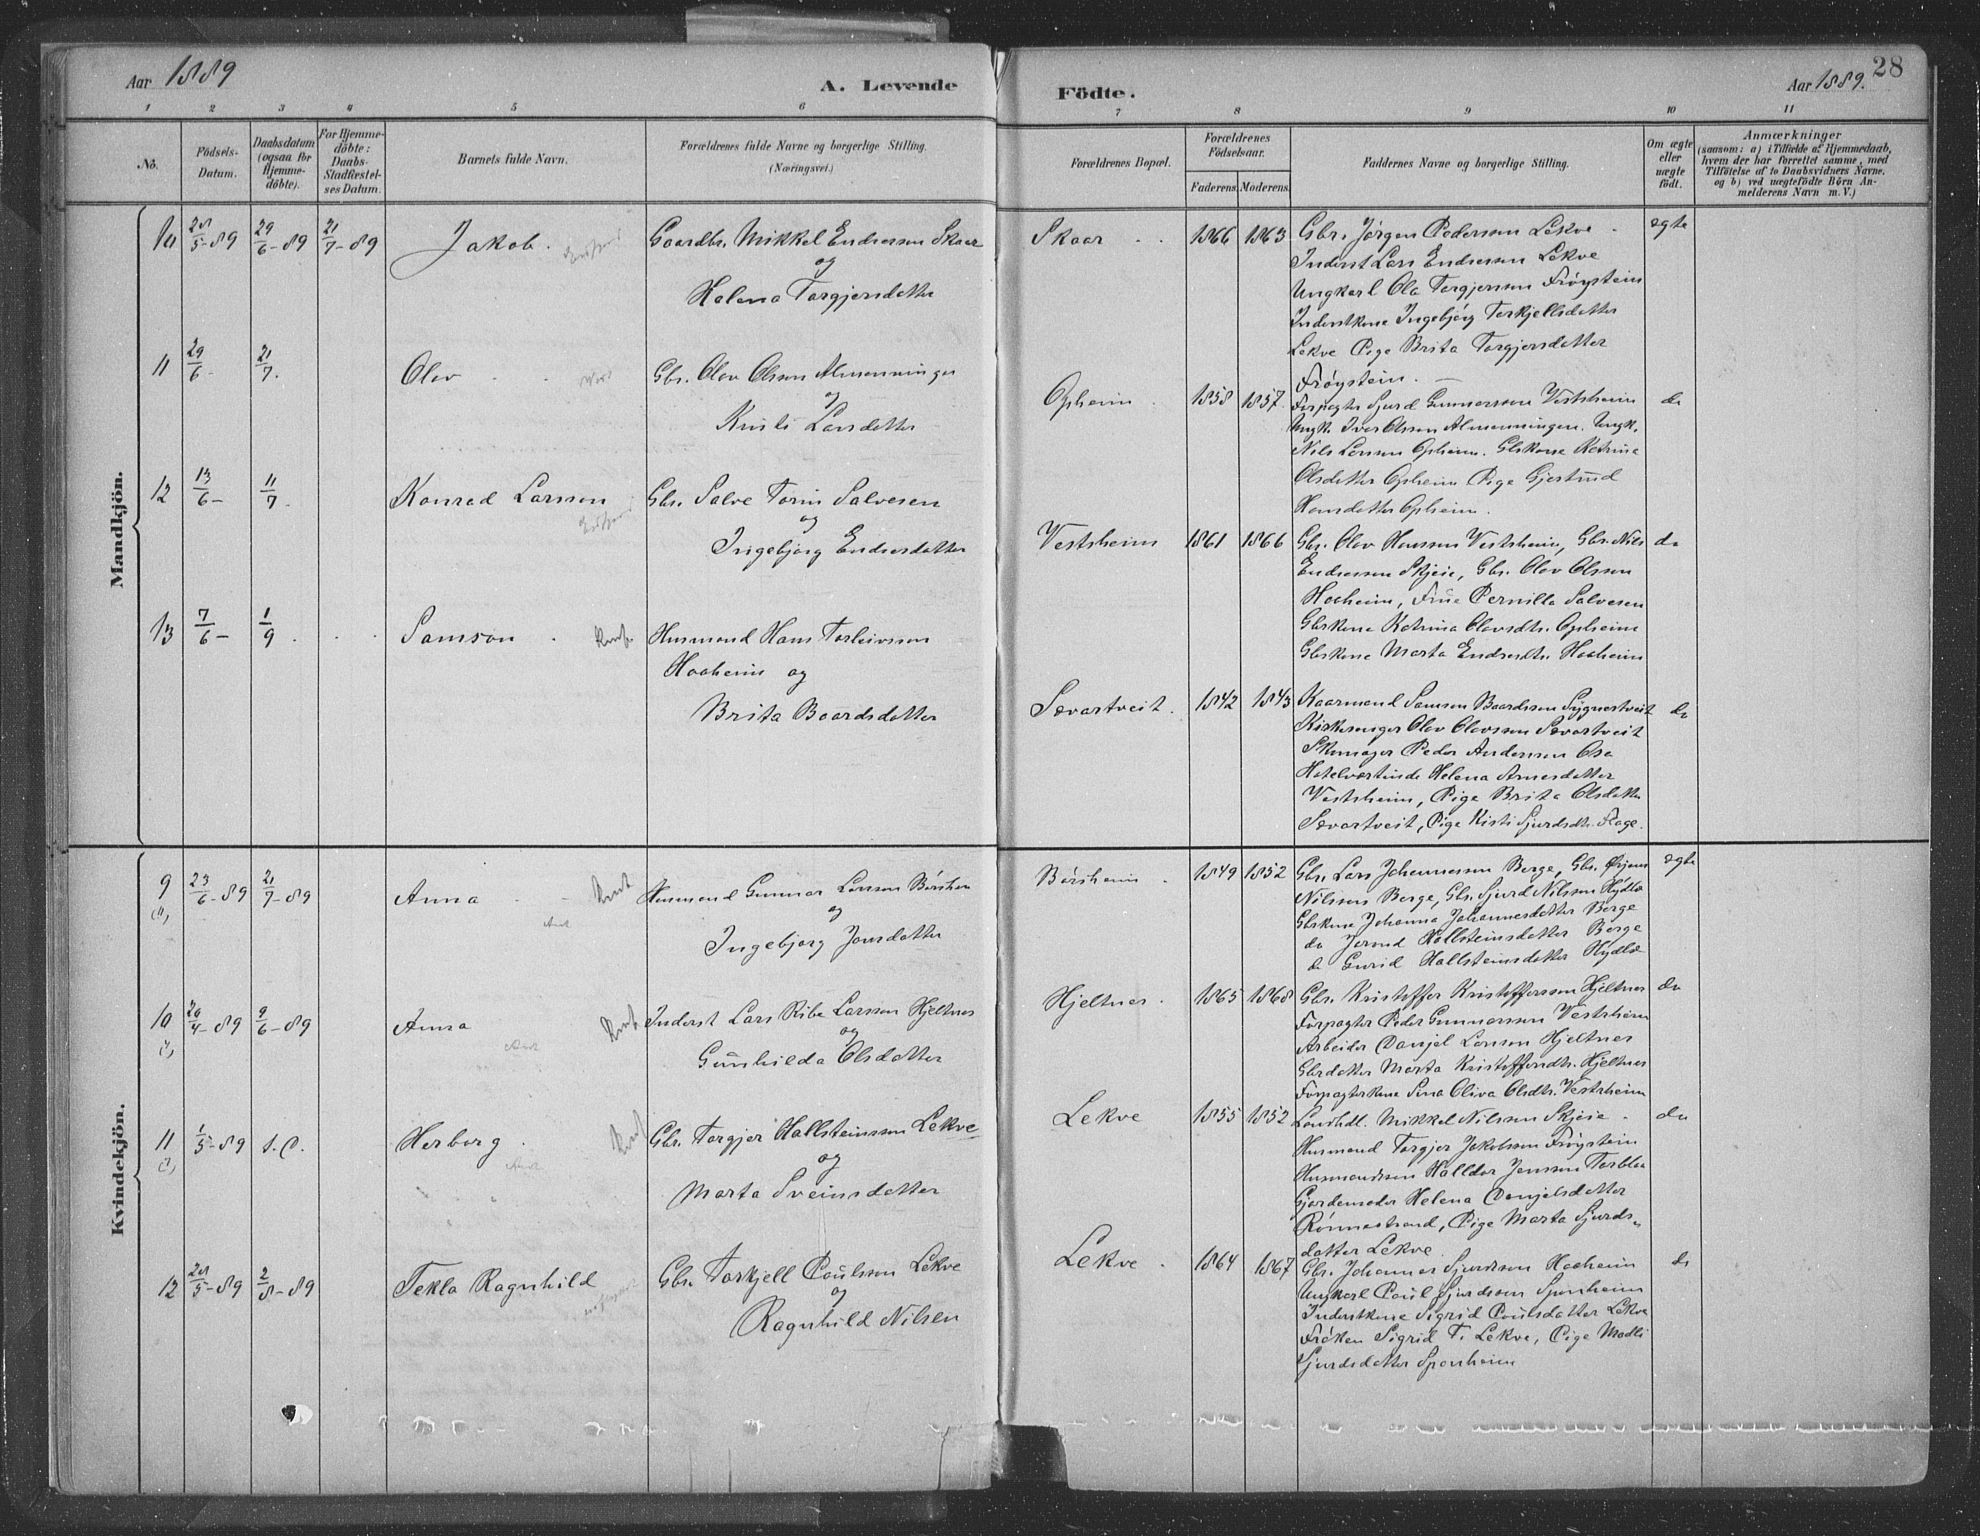 Aar 1889
A. Levende
Födte.
Aar 1889.
28
1 2 3 4 5 6 7 8 9 10 11
No.
Födsels-Datum.
Daabsdatum (ogsaa for Hjemmedöbte).
For Hjemmedöbte: Daabs-Stadfæstelses Datum.
Barnets fulde Navn.
Forældrenes fulde Navne og borgerlige Stilling.
(Næringsvei.)
Forældrenes Bopæl.
Forældrenes Födselsaar.
Faderens. Moderens.
Faddernes Navne og borgerlige Stilling.
Om ægte eller uægte födt.
Anmærkninger
(saasom: a) i Tilfælde af Hjemmedaab,
hvem der har forrettet samme, med
Tilföielse af to Daabsvidners Navne,
og b) ved uægtefödte Börn An-
melderens Navn m. V.)
Mandkjön.
10 28/5-89 29/6-89 21/7-89 Jakob. Gaardbr. Mikkel Endresen Skaar
og
Helena Torgjersdatter
Skaar 1866 1863 Gbr. Jörgen Pederssen Lekve ægte
Inderst Lars Endresen Lekve
Ungkarl Ola Torgjerssen Fröystein
Inderstkone Ingebjörg Torkjellsdatter
Lekve Pige Brita Torgjersdatter
Fröystein.
11 29/6- 21/7. Olav Gbr. Olav Olsson Almenningen
og
Kristi Larsdatter
Opheim 1858 1857. Forpagter Sjurd Gunnarsson Vestsheim do
Ungk. Ivar Olsson Almenningen. Ungk.
Nils Larsson Opheim. Gbskone Katrina
Olsdatter Opheim Pige Gjertrud
Hansdatter Opheim.
12 13/6- 11/7. Konrad Larsson Gbr. Salve Torin Salvesen
og
Ingebjorg Endresdatter
Vestsheim 1861 1866 Gbr. Olav Hanssen Vestsheim, Gbr. Nils do
Endressen Skjeie, Gbr. Olav Olsson
Haaheim, Frue Pernilla Salvesen
Gbskone Katrina Olavsdtr. Opheim
Gbskone Marta Endresdtr. Haaheim
13 7/6- 1/9. Samson Husmand Hans Torleivsson
Haaheim og
Brita Baardsdatter
Sævartveit. 1842 1843 Kaarmand Samson Baardsson Sygnestveit do
Kirkesanger Olav Olavsson Sævartveit
Skomager Peder Anderssen Osa
Hotelværtinde Helena Arnesdatter
Vestsheim, Pige Brita Olsdatter
Sævartveit, Pige Kisti Sjurdsdtr. Flage.
Kvindekjön.
9 23/6-89 21/7-89 Anna Husmand Gunnar Larsson Börsheim
og
Ingebjorg Jonsdatter
Börsheim 1849 1852 Gbr. Lars Johannesson Berge, Gbr. Örjans ægte
Nilssen Berge, Gbr. Sjurd Nilsson Hydle
Gbskone Johanna Johannesdatter Berge
do Jorund Hallsteinsdatter Berge
do Gurid Hallsteinsdatter Hydle
10 20/4-89 9/6-89 Anna Inderst Lars Ribe Larsson Hjeltnes
og
Gunhilda Olsdatter
Hjeltnes. 1865 1868 Gbr. Kristoffer Kristoffersson Hjeltnes do
Forpagter Peder Gunnarsson Vestrheim
Arbeider Danjel Larsson Hjeltnes
Gbrdatter Marta Kristoffersdtr. Hjeltnes
Forpagterkone Sina Oliva Olsdtr. Vestrheim
11 1/5-89 s.D. Herborg. Gbr. Torgjer Hallsteinsson Lekve
og
Marta Sveinsdatter
Lekve 1855 1852 Landhdl. Mikkel Nilssen Skjeie do
Husmand Torgjer Jakobsson Fröystein
Husmandssøn Halldor Jonsson Torblaa
Gjordemoder Helena Danjelsdatter
Rönnestrand, Pige Marta Sjurds-
datter Lekve
12 28/5-89 2/8-89 Tekla Ragnhild Gbr. Torkjell Paulsson Lekve
og
Ragnhild Nilsen
Lekve 1864 1867 Gbr. Johannes Sjurdsson Haaheim do
Ungkarl Paul Sjurdsson Sponheim
Inderstkone Sigrid Paulsdatter Lekve
Fröken Sigrid T. Lekve, Pige Madli
Sjurdsdatter Sponheim